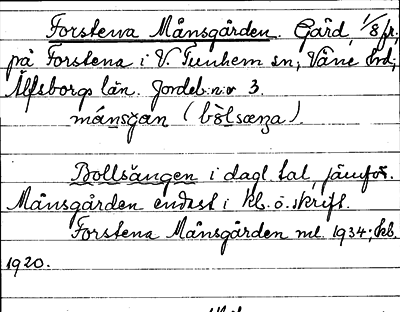 Forstena Månsgården. Gård, 1/8 fr,
på Forstena i V. Tunhem sn, Väne hrd,
Älfsborgs län. Jordeb. n:r 3.
månsgan (bòlsæŋa).
Bollsängen i dagl. tal, jämför.
Månsgården endast i kb. o. skrift.
Forstena Månsgården ml. 1934; kb.
1920.